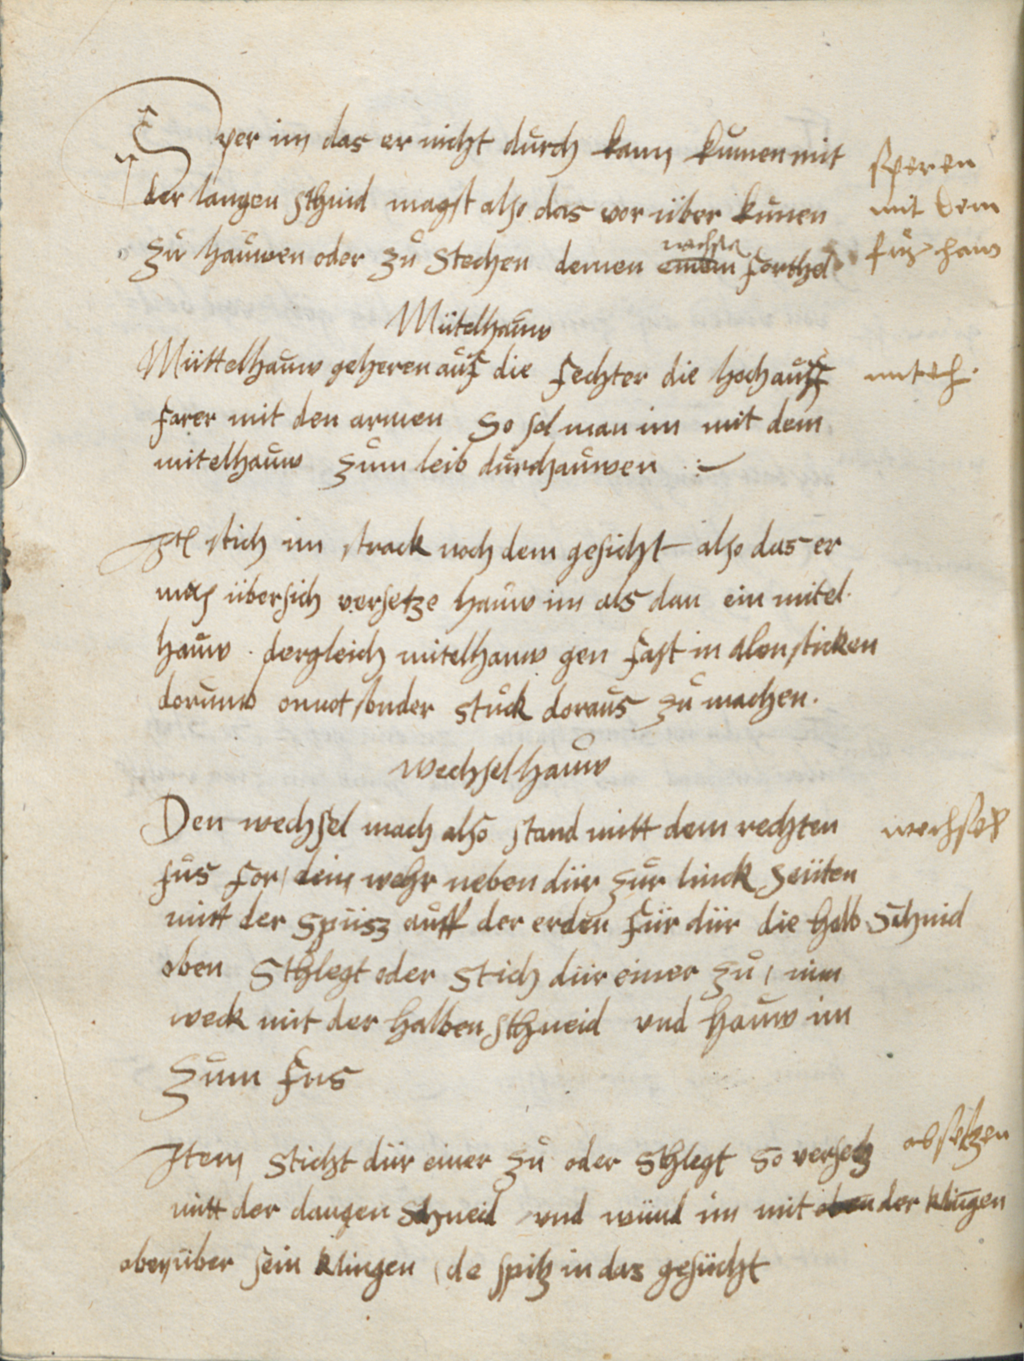 Sper im das er nicht durch kann kumen mit
der langen schnid magst also das vor über kunen
zu hauwen oder zu Stechen demen wechsel einem forthel
speren
mit dem
Mütelhauw
Müttelhauw geheren auff die fechter die hochauff
mitelh.
farer mit den armen So sol man im mit dem
mitelhauw zum leib durchauwen :-
Jtl stich im strack noch dem gesicht also das er
mus übersich versetze hauw im als dan ein mitel
hauw. dergleich mitelhauw gen fast in alen sticken
dorumb onnot sonder stuck doraus zu machen.
Wechselhauw
Den wechsel mach also stand mitt dem rechten
wechsel
fus for / dein wehr neben dür zur linck seüten
mitt der spüsz auff der erden für dür die halb Schnid
oben Schlegt oder Stich dür einer zu / nim
weck mit der halben schneid und hauw im
zum fus
Item sticht dür einer zu oder schlegt so versetz
absetzen
mitt der langen schneid und wünd im mit oben der klingen
oben über sein klingen / de spitz in das gesücht